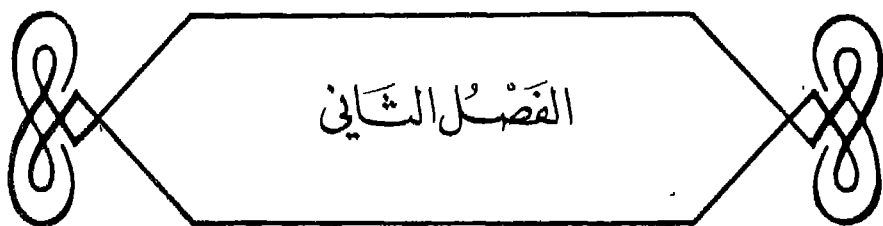 الفَصْلُ الثَّانِي